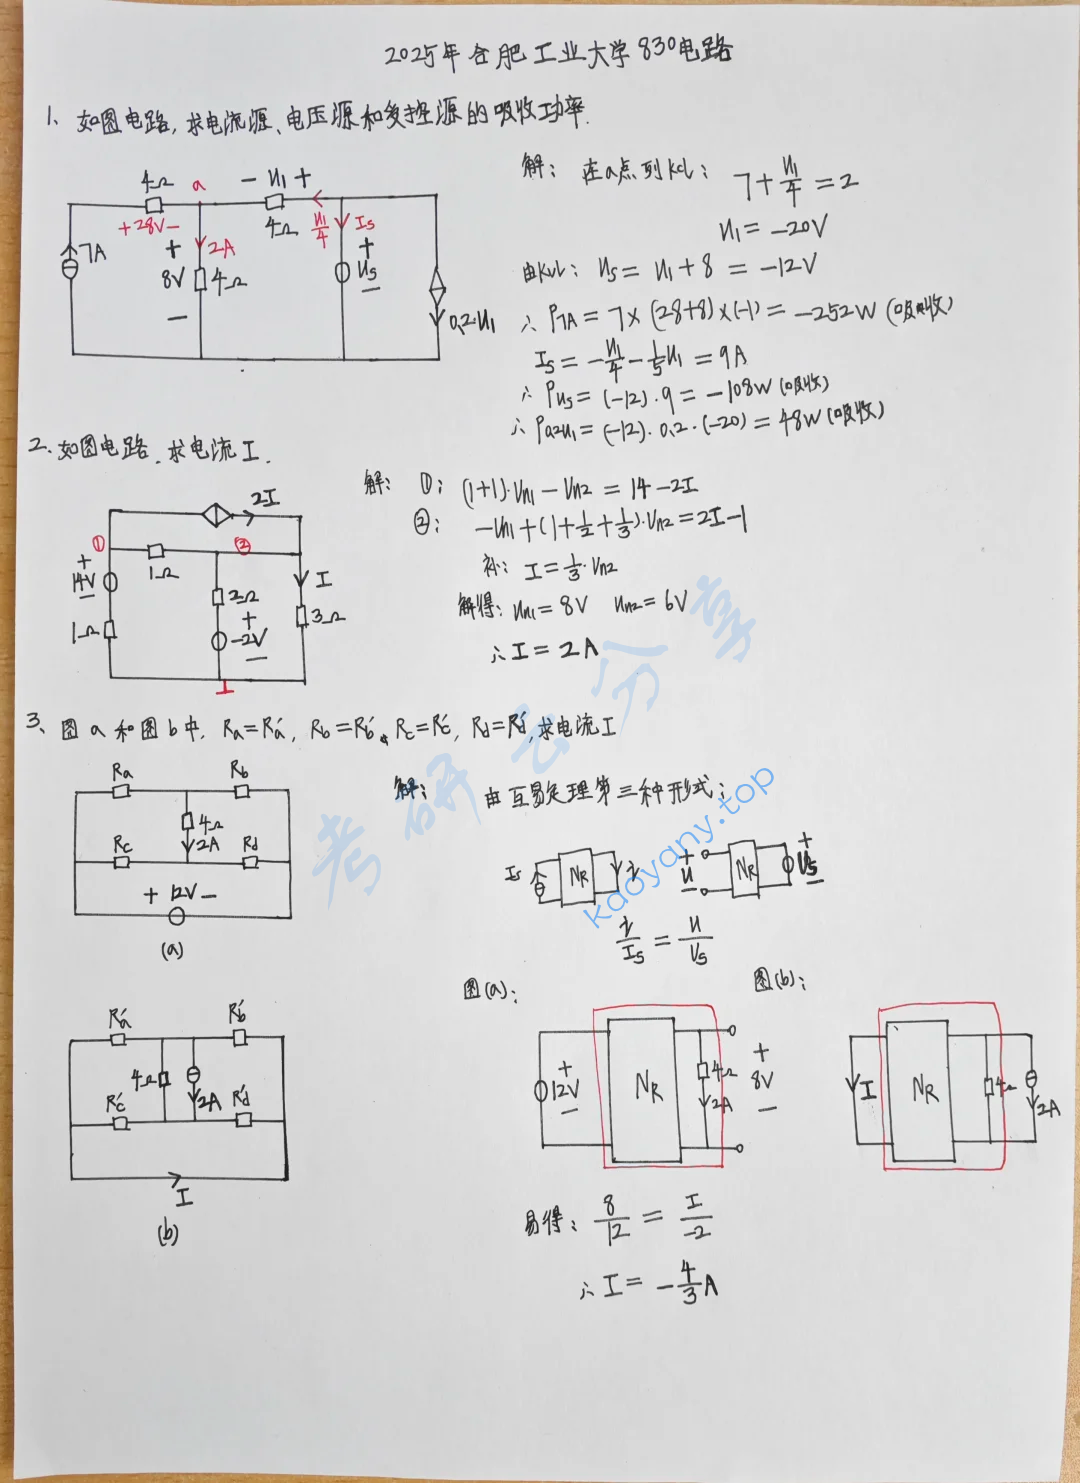 2025年合肥工业大学830电路
1、如图电路,求电流源、电压源和受控源的吸收功率.
4Ω a - U1 +
+28V- 4Ω U1/4 Is
7A + 2A +
8V 4Ω Us
- -
0.2U1
解: 在a点列KCL: 7+U1/4=2
U1=-20V
由KVL: Us=U1+8=-12V
∴ P7A=7×(28+8)×(-1)=-252W(吸收)
Is=-U1/4-1/5U1=9A
∴ PUs=(-12)·9=-108W(吸收)
∴ P0.2U1=(-12)·0.2·(-20)=48W(吸收)
2.如图电路.求电流I.
2I
① ②
+ 1Ω I
14V 2Ω 3Ω
- +
1Ω -2V
-
解: ①: (1+1)·Un1-Un2=14-2I
②: -Un1+(1+1/2+1/3)·Un2=2I-1
补: I=1/3·Un2
解得: Un1=8V Un2=6V
∴I=2A
3、图a和图b中, Ra=Ra′, Rb=Rb′, Rc=Rc′, Rd=Rd′,求电流I
Ra Rb
4Ω
Rc 2A Rd
+ 12V -
(a)
解: 由互易定理第三种形式:
Is NR i + U - NR + Us -
i/Is=U/Us
图(a): 图(b):
+ 12V - NR 4Ω 2A + 8V -
I NR 4Ω 2A
Ra′ Rb′
4Ω
Rc′ 2A Rd′
I
(b)
易得: 8/12=I/-2
∴I=-4/3A
考研云分享
kaoyany.top